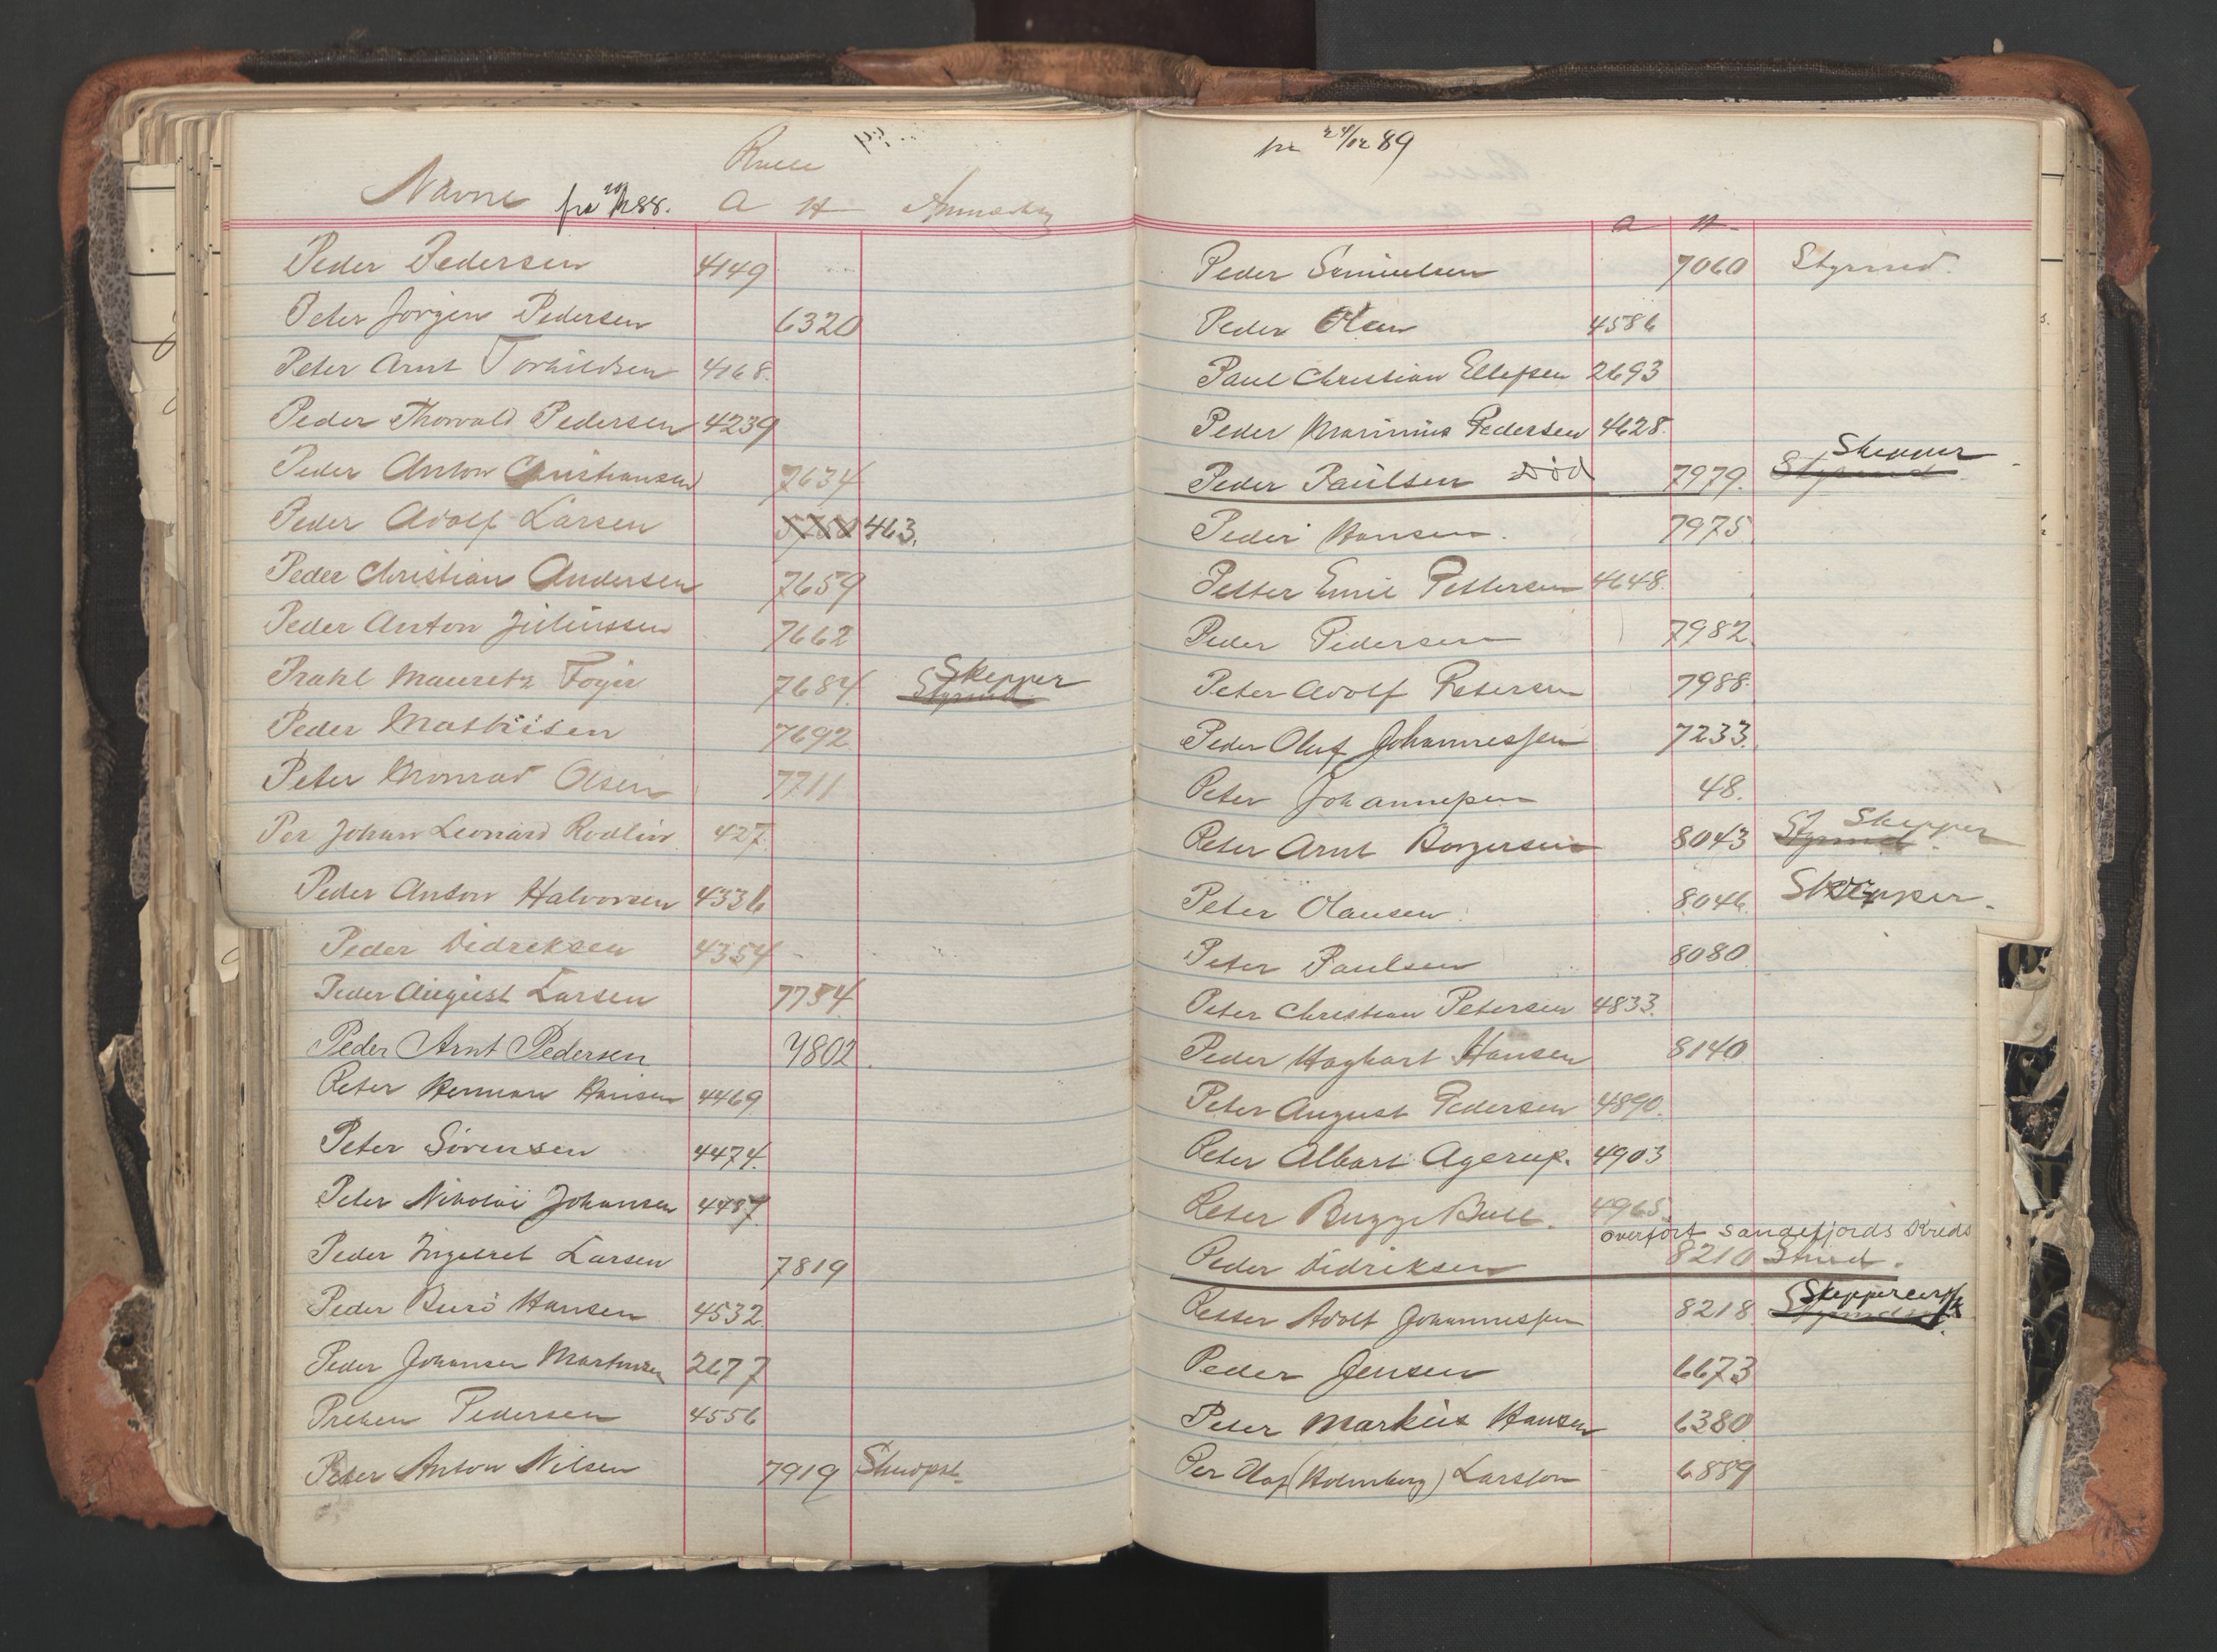 Rulle
Navne fra 88. a H Anmærkn
Peder Pedersen 4149
Peter Jørgen Pedersen 6320
Peter Arnt Torkildsen 4168.
Peder Thorvald Pedersen 4239
Peder Anton Christiansen 7634
Peder Adolf Larsen 5750 463.
Peder Christian Andersen 7659
Peder Anton Juliussen 7662
Prahl Mauretz Foyn 7684. Skepper
Styrmd.
Peder Mathisen 7692
Peter Monrad Olsen 7711
Per Johan Leonard Rodlin 427
Peder Anton Halvorsen 4336
Peder Didreksen 4354
Peder August Larsen 7754
Peder Arnt Pedersen 7802.
Peter Herman Hansen 4469
Peter Sørensen 4474.
Peter Nikolai Johansen 4487
Peder Ingebret Larsen 7819
Peder Hansen 4532.
Peder Johansen Martinsen 2677
Preben Pedersen 4556
Peter Anton Nilsen 7919
24/12 89
a H
Peder Samuelsen 7060 Styrmd.
Peder Olsen 4586
Paul Christian Ellefsen 2693
Peder Marinius Pedersen 4628.
Skepper
Peder Paulsen død 7979. Styrmd.
Peder Hansen. 7975
Petter Emil Pettersen 4648.
Peder Pedersen 7982.
Peter Adolf Petersen 7988.
Peder Oluf Johannessen 7233.
Peter Johannesen 48.
Skepper
Peter Arnt Borgersen 8043 Styrmd.
Peter Olausen 8046. Skepper.
Peter Paulsen 8080
Peter Christian Petersen 4833.
Peder Hagbart Hansen 8140
Peter August Pedersen 4890.
Peter Albart Agerup. 4903
Peter Bugge Bull. 4965.
overfört Sandefjords Kreds
Peder Didriksen 8210 Stmd.
Petter Adolf Johannessen 8218
Peder Jensen 6673
Peter Markus Hansen 6380
Per Olaf (Holmberg) Larsson 6889